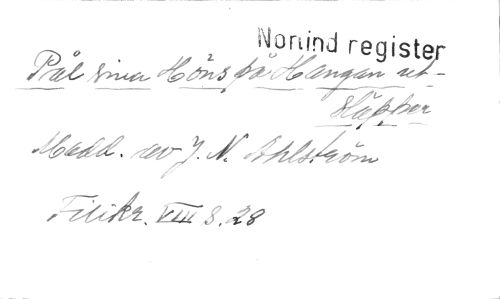 Norlind register
Pål sina Höns på Hangan ut-
släpper
Medd. av J. N. Ahlström
Filikr. VIII S. 28